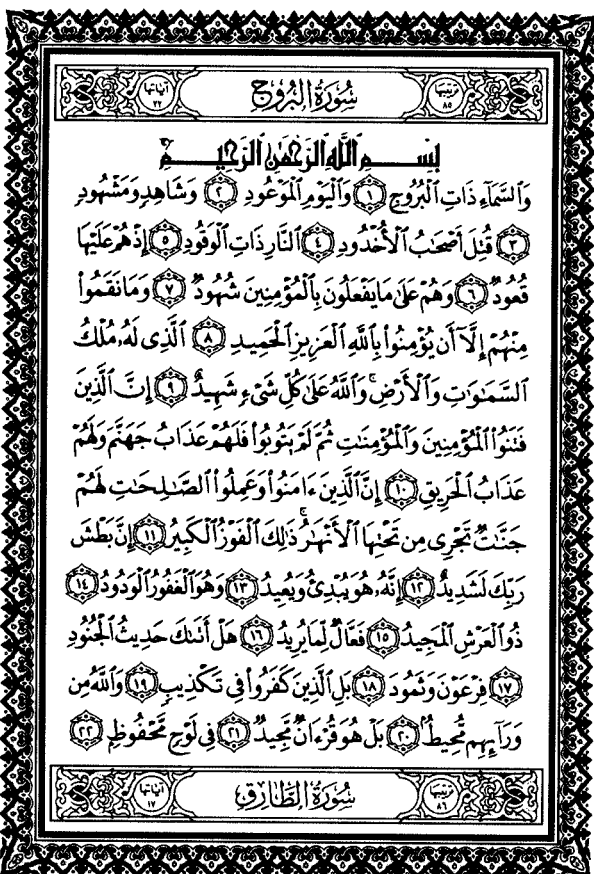 آياتها ٢٢ سُورَةُ الْبُرُوجِ ترتيبها ٨٥
بِسْمِ ٱللَّهِ ٱلرَّحْمَٰنِ ٱلرَّحِيمِ
وَٱلسَّمَآءِ ذَاتِ ٱلْبُرُوجِ ١ وَٱلْيَوْمِ ٱلْمَوْعُودِ ٢ وَشَاهِدٍ وَمَشْهُودٍ
٣ قُتِلَ أَصْحَٰبُ ٱلْأُخْدُودِ ٤ ٱلنَّارِ ذَاتِ ٱلْوَقُودِ ٥ إِذْ هُمْ عَلَيْهَا
قُعُودٌ ٦ وَهُمْ عَلَىٰ مَا يَفْعَلُونَ بِٱلْمُؤْمِنِينَ شُهُودٌ ٧ وَمَا نَقَمُوا۟
مِنْهُمْ إِلَّآ أَن يُؤْمِنُوا۟ بِٱللَّهِ ٱلْعَزِيزِ ٱلْحَمِيدِ ٨ ٱلَّذِى لَهُۥ مُلْكُ
ٱلسَّمَٰوَٰتِ وَٱلْأَرْضِ ۚ وَٱللَّهُ عَلَىٰ كُلِّ شَىْءٍ شَهِيدٌ ٩ إِنَّ ٱلَّذِينَ
فَتَنُوا۟ ٱلْمُؤْمِنِينَ وَٱلْمُؤْمِنَٰتِ ثُمَّ لَمْ يَتُوبُوا۟ فَلَهُمْ عَذَابُ جَهَنَّمَ وَلَهُمْ
عَذَابُ ٱلْحَرِيقِ ١٠ إِنَّ ٱلَّذِينَ ءَامَنُوا۟ وَعَمِلُوا۟ ٱلصَّٰلِحَٰتِ لَهُمْ
جَنَّٰتٌ تَجْرِى مِن تَحْتِهَا ٱلْأَنْهَٰرُ ۚ ذَٰلِكَ ٱلْفَوْزُ ٱلْكَبِيرُ ١١ إِنَّ بَطْشَ
رَبِّكَ لَشَدِيدٌ ١٢ إِنَّهُۥ هُوَ يُبْدِئُ وَيُعِيدُ ١٣ وَهُوَ ٱلْغَفُورُ ٱلْوَدُودُ ١٤
ذُو ٱلْعَرْشِ ٱلْمَجِيدُ ١٥ فَعَّالٌ لِّمَا يُرِيدُ ١٦ هَلْ أَتَىٰكَ حَدِيثُ ٱلْجُنُودِ
١٧ فِرْعَوْنَ وَثَمُودَ ١٨ بَلِ ٱلَّذِينَ كَفَرُوا۟ فِى تَكْذِيبٍ ١٩ وَٱللَّهُ مِن
وَرَآئِهِم مُّحِيطٌۢ ٢٠ بَلْ هُوَ قُرْءَانٌ مَّجِيدٌ ٢١ فِى لَوْحٍ مَّحْفُوظٍۭ ٢٢
آياتها ١٧ سُورَةُ الطَّارِقِ ترتيبها ٨٦